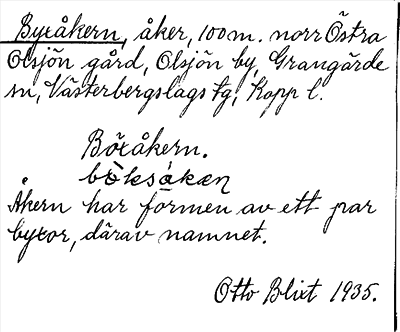 Byxåkern, åker, 100 m. norr Östra
Olsjön gård, Olsjön by, Grangärde
sn, Västerbergslags tg, Kopp l.
Böxåkern.
bòksákæṇ
Åkern har formen av ett par
byxor, därav namnet.
Otto Blixt 1935.